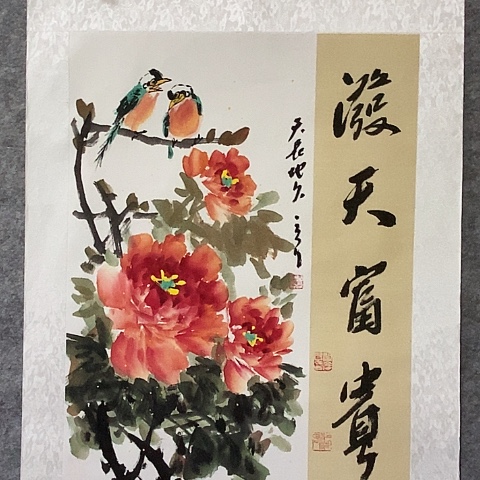 潑天富貴
天長地久